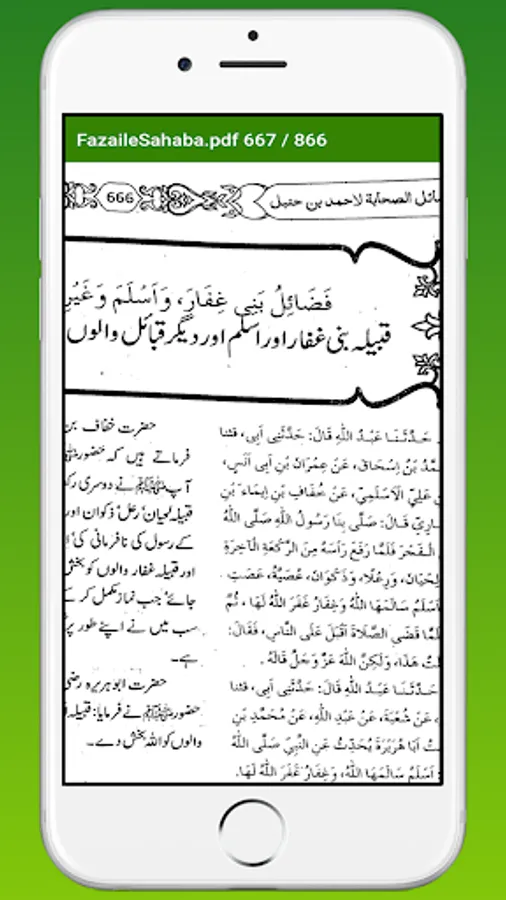 FazaileSahaba.pdf 667 / 866
666
ئل الصحابة لاحمد بن حنبل
فَضَائِلُ بَنِي غِفَارَ، وَاَسْلَمَ وَغَيْرِ
قبیلہ بنی غفار اور اسلم اور دیگر قبائل والوں
حَدَّثَنَا عَبْدُ اللّٰهِ قَالَ: حَدَّثَنِي اَبِي، قثنا
بْنُ اِسْحَاقَ، عَنْ عِمْرَانَ بْنِ اَبِي اَنَسٍ،
عَلِيٍّ الْاَسْلَمِيِّ، عَنْ خُفَافِ بْنِ اِيمَاءَ بْنِ
قَالَ: صَلَّى بِنَا رَسُولُ اللّٰهِ صَلَّى اللّٰهُ
الْفَجْرَ فَلَمَّا رَفَعَ رَاْسَهُ مِنَ الرَّكْعَةِ الْآخِرَةِ
لِحْيَانَ، وَرِعْلًا، وَذَكْوَانَ، عُصَيَّةُ، عَصَتِ
اَسْلَمُ سَالَمَهَا اللّٰهُ وَغِفَارُ غَفَرَ اللّٰهُ لَهَا، ثُمَّ
قَضَى الصَّلَاةَ اَقْبَلَ عَلَى النَّاسِ، فَقَالَ:
هٰذَا، وَلٰكِنَّ اللّٰهَ عَزَّ وَجَلَّ قَالَهُ.
حَدَّثَنَا عَبْدُ اللّٰهِ قَالَ: حَدَّثَنِي اَبِي، قثنا
عَنْ شُعْبَةَ، عَنْ عَبْدِ اللّٰهِ، عَنْ مُحَمَّدِ بْنِ
اَبَا هُرَيْرَةَ يُحَدِّثُ عَنِ النَّبِيِّ صَلَّى اللّٰهُ
اَسْلَمُ سَالَمَهَا اللّٰهُ، وَغِفَارُ غَفَرَ اللّٰهُ لَهَا.
حضرت خفاف بن
فرماتے ہیں کہ حضور
آپ ﷺ نے دوسری
قبیلہ لحیان، رعل، ذکوان اور
کے رسول کی نافرمانی کی
اور قبیلہ غفار والوں کو بخش
جائے' جب نماز مکمل کر
سب میں نے اپنے طور پر
ہے۔
حضرت ابو ہریرہ رضی
حضور ﷺ نے فرمایا: قبیلہ
والوں کو اللہ بخش دے۔